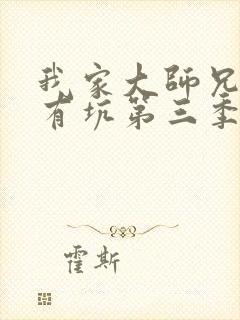 我家大师兄
有坑第三季
霍斯